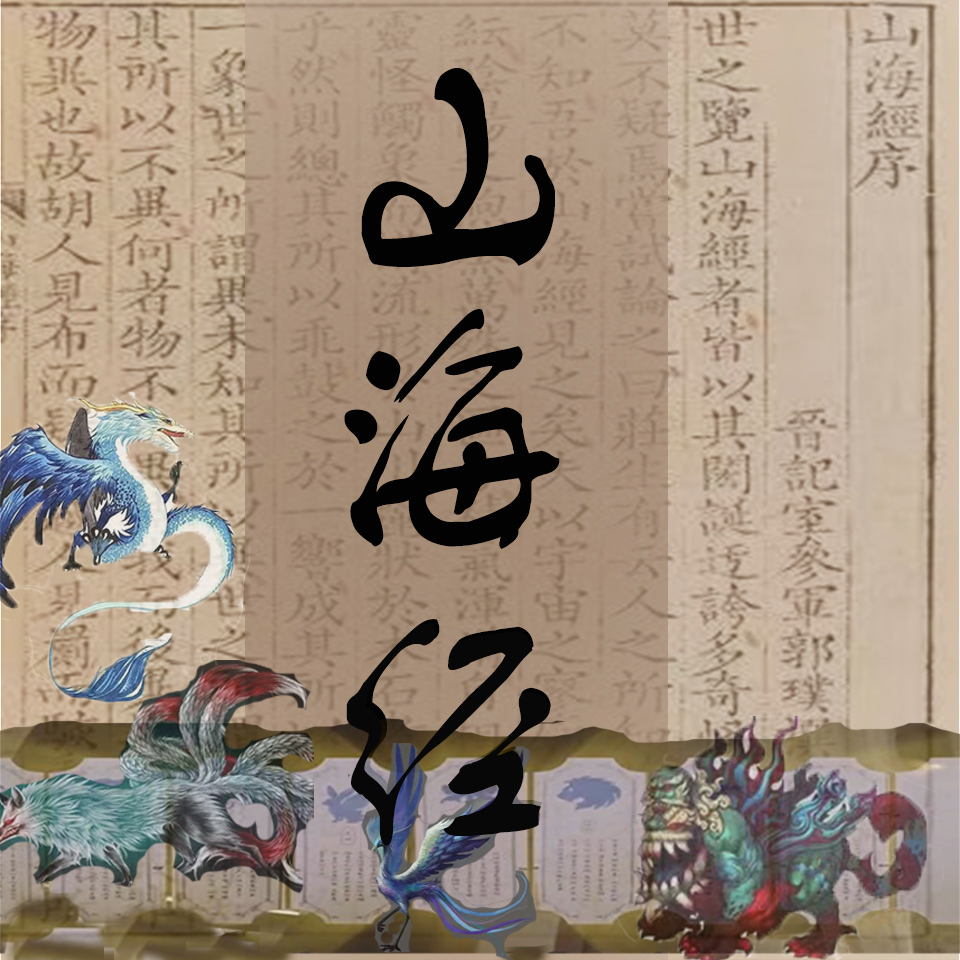 山海经
山海經序
晉記室參軍郭璞
世之覽山海經者皆以其閎誕迂誇多奇
莫不疑焉嘗試論之曰莊生有云人之所
不知吾於山海經見之矣夫以宇宙之寥
紜陰陽之煦蒸萬 氣渾
靈怪觸象而 流形於 狀於木石
乎然則總其所以乖鼓之於一響成其所
一象世之所謂異未知其所以異世之
其所以不異何者物不 我而後異
物異也故胡人見布而 人見罽而駭